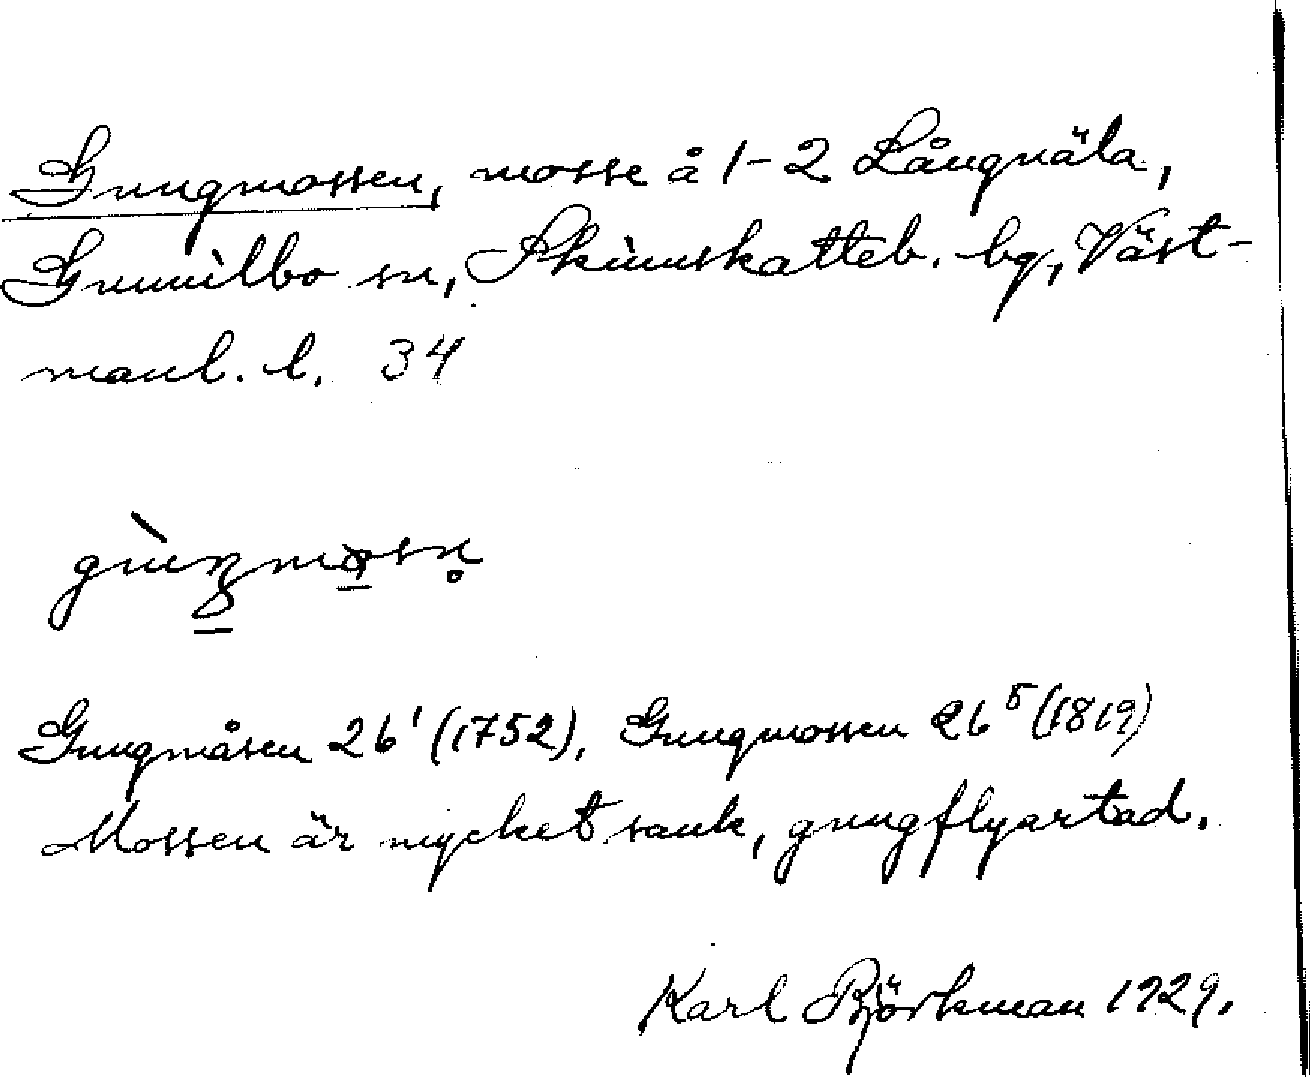 Gungmossen, mosse å 1-2 Långnäla,
Gunnilbo sn, Skinnskatteb. bg, Väst-
manl. l. 34
Gungmåsen 26¹ (1752), Gungmossen 26⁵ (1819)
Mossen är mycket sank, gungflyartad.
Karl Björkman 1929.